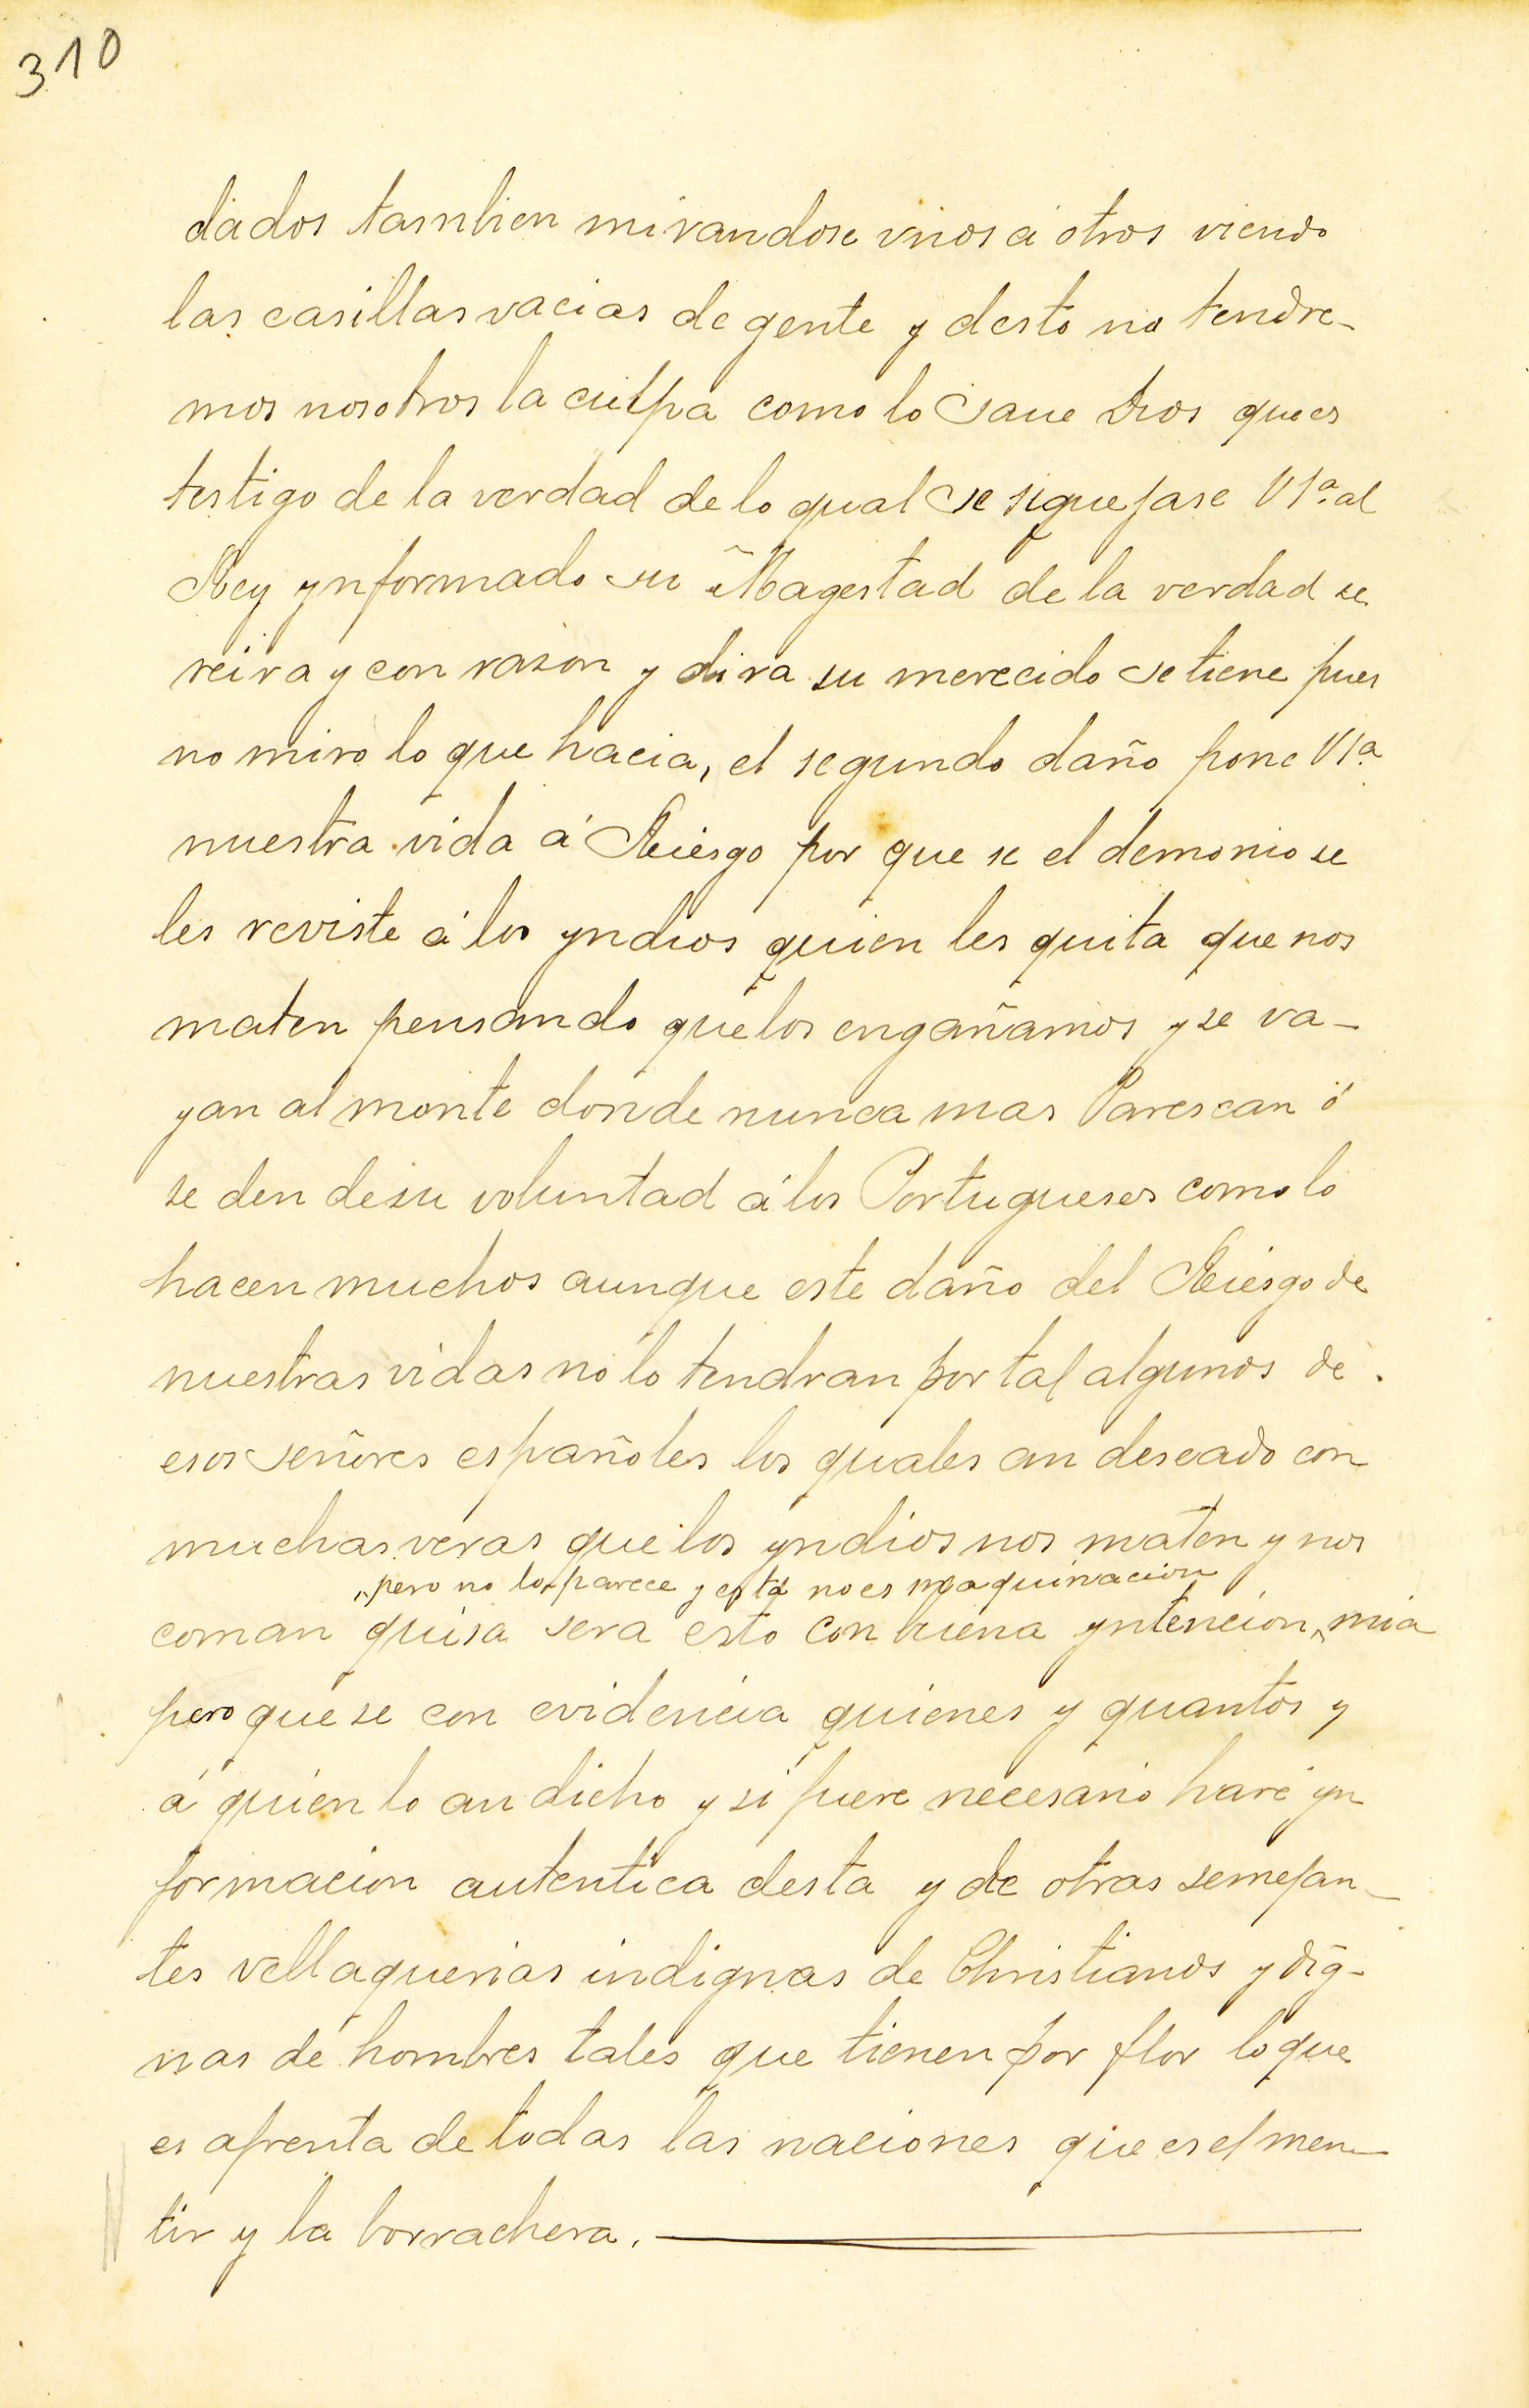 310
dados tambien mirandose vnos á otros viendo
las casillas vacias de gente y desto no tendre-
mos nosotros la culpa como lo saue Dios que es
testigo de la verdad de lo qual se sigue jase VSª al
Rey ynformado su Magestad de la verdad se
reira y con rason y dira su merecido se tiene pues
no miro lo que hacia, el segundo daño pone VSª
nuestra vida á Riesgo por que se el demonio se
les reviste á los yndios quien les quita que nos
maten pensando que los engañamos y se va-
yan al monte donde nunca mas Parescan ó
se den de su voluntad á los Portugueses como lo
hacen muchos aunque este daño del Riesgo de
nuestras vidas no lo tendran por tal algunos de
esos señores españoles los quales an deseado con
muchas veras que los yndios nos maten y nos
pero no lo parece y esta no es maquinacion
coman quisa sera esto con buena yntencion, mia
pero que se con evidencia quienes y quantos y
á quien lo an dicho y si fuere necesario haré yn
formacion autentica desta y de otras semejan-
tes vellaquerias indignas de Christianos y dig-
nas de hombres tales que tienen por flor lo que
es afrenta de todas las naciones que es el men-
tir y la borrachera.